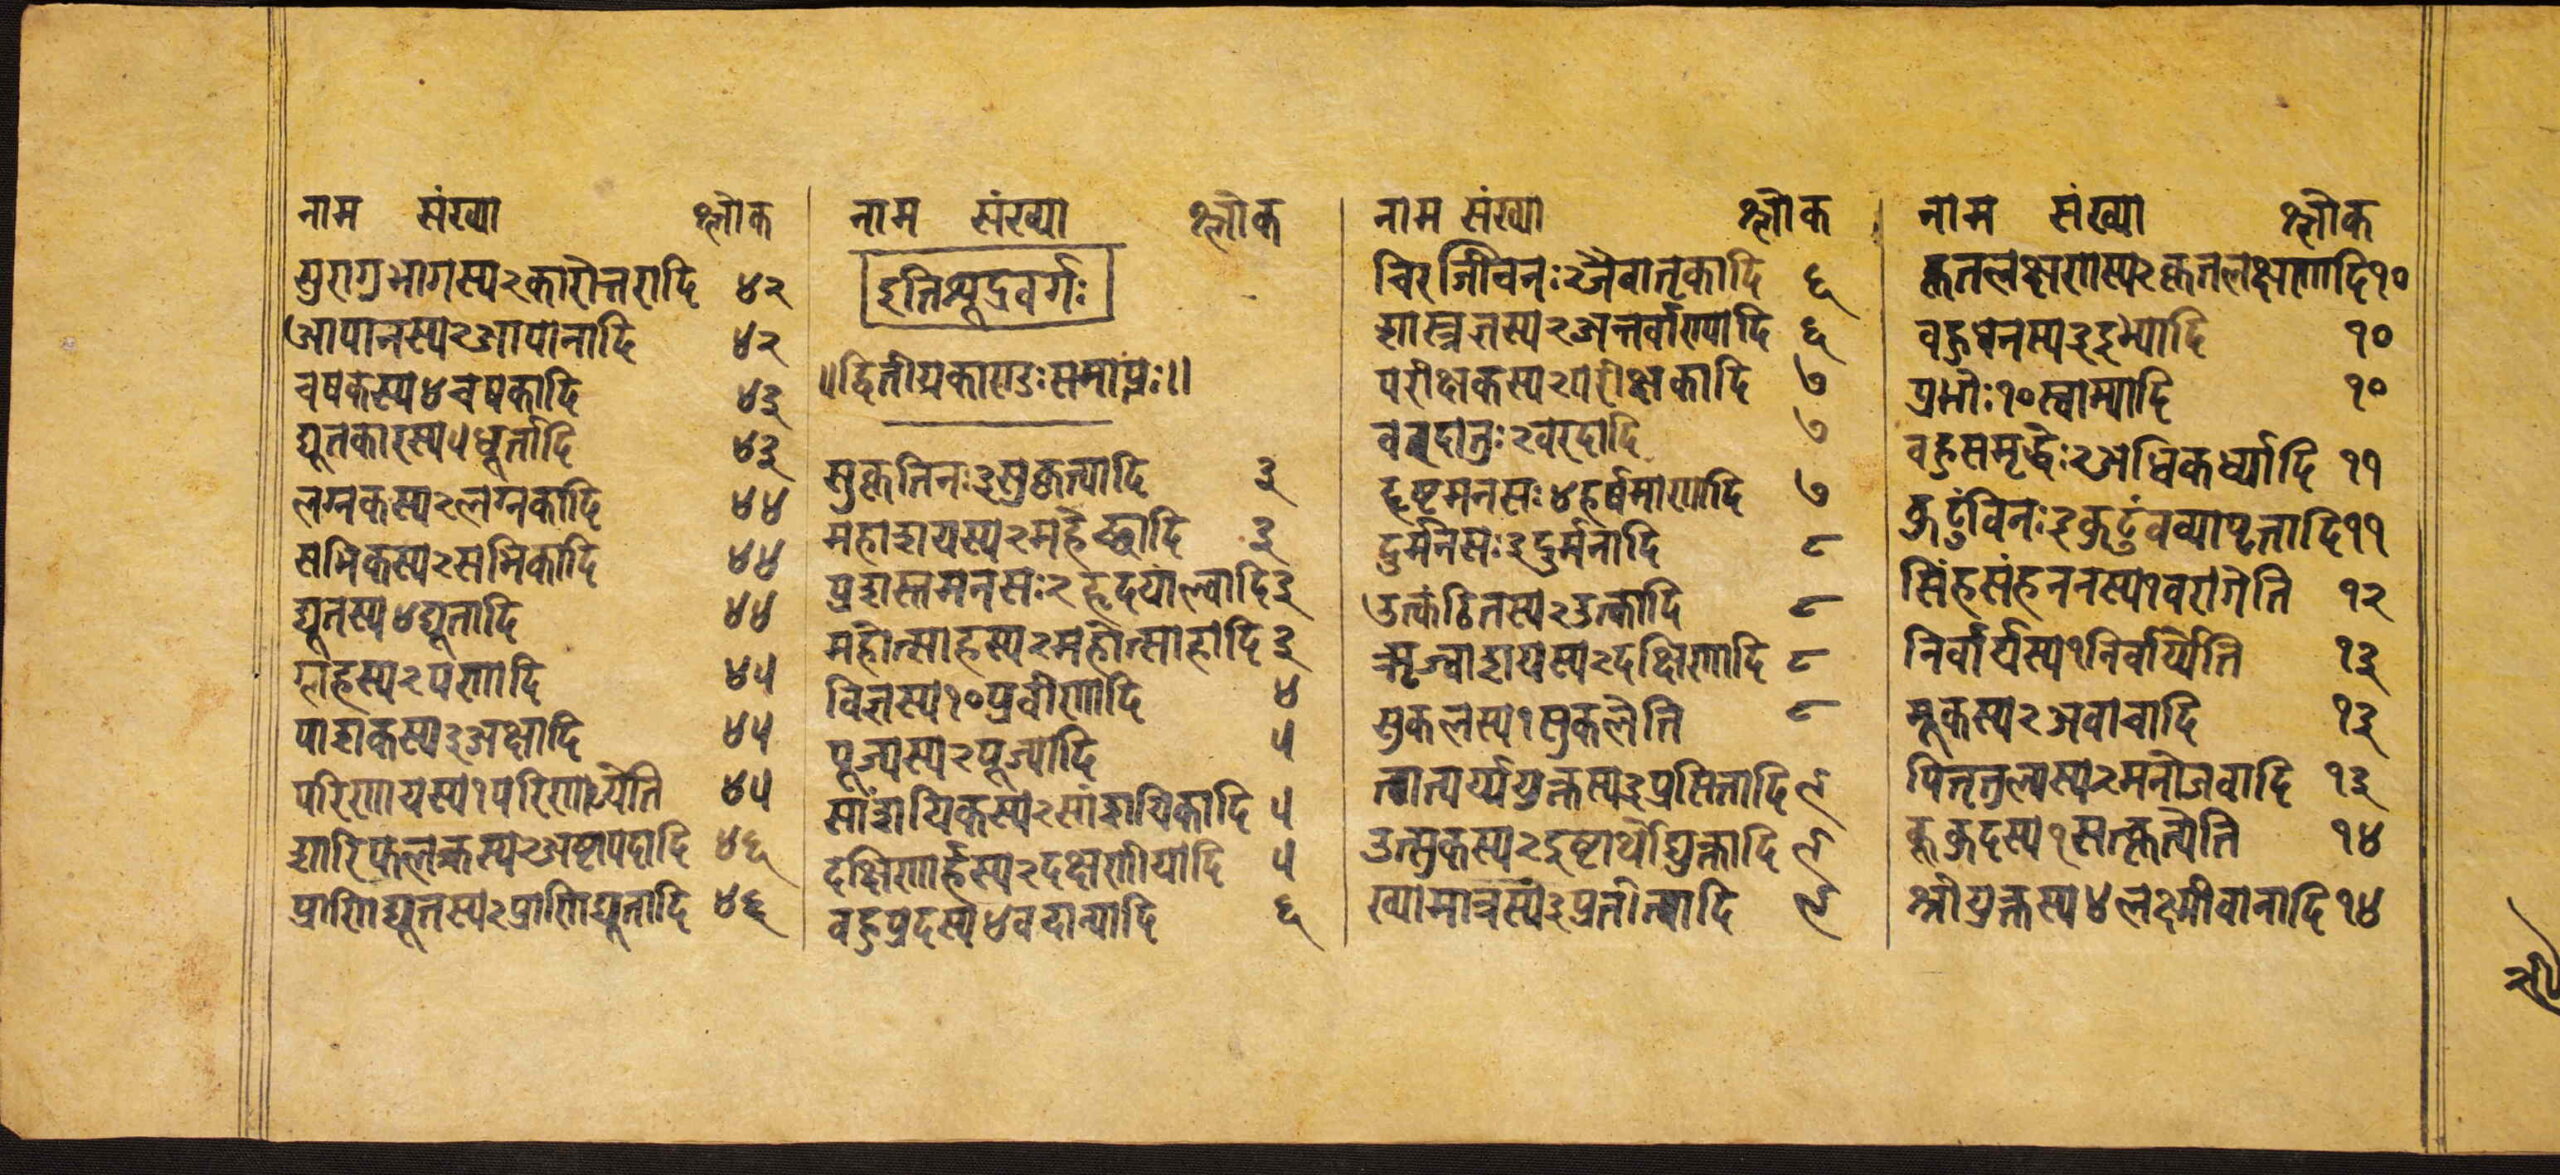 नाम संख्या श्लोक
सुराग्रभागस्य २ कारोत्तरादि ४२
आपानस्य २ आपानादि ४२
चषकस्य ४ चषकादि ४३
द्यूतकारस्य ५ धूर्तादि ४३
लग्नकस्य २ लग्नकादि ४४
सभिकस्य २ सभिकादि ४४
द्यूतस्य ४ द्यूतादि ४४
ग्लहस्य २ पणादि ४५
पाशकस्य ३ अक्षादि ४५
परिणायस्य १ परिणायेति ४५
शारिफलकस्य २ अष्टापदादि ४६
प्राणिद्यूतस्य २ प्राणिद्यूतादि ४६
नाम संख्या श्लोक
इतिशूद्रवर्गः
॥ द्वितीयकाण्डः समाप्तः ॥
सुकृतिनः ३ सुकृत्यादि ३
महाशयस्य २ महेच्छादि ३
प्रशस्तमनसः २ हृदयाल्वादि ३
महोत्साहस्य २ महोत्साहादि ३
विज्ञस्य १० प्रवीणादि ४
पूज्यस्य २ पूज्यादि ५
सांशयिकस्य २ सांशयिकादि ५
दक्षिणार्हस्य २ दक्षणीयादि ५
वहुप्रदस्य ४ वदान्यादि ६
नाम संख्या श्लोक
चिरजीविनः २ जैवातृकादि ६
शास्त्रज्ञस्य २ अन्तर्वाण्यादि ६
परीक्षकस्य २ परीक्षकादि ७
वरदातुः २ वरदादि ७
हृष्टमनसः ४ हर्षमाणादि ७
दुर्मनसः ३ दुर्मनादि ८
उत्कंठितस्य २ उत्कादि ८
ऋज्वाशयस्य २ दक्षिणादि ८
सुकलस्य १ सुकलेति ८
तात्पर्य्ययुक्तस्य ३ प्रसितादि ९
उत्सुकस्य २ इष्टार्थोद्युक्तादि ९
ख्यामात्रस्य ३ प्रतीत्यादि ९
नाम संख्या श्लोक
कृतलक्षणस्य २ कृतलक्षणादि १०
वहुधनस्य ३ इभ्यादि १०
प्रभोः १० स्वाम्यादि १०
वहुसमृद्धेः २ अधिकर्ध्यादि ११
कुटुंविनः ३ कुटुंवव्यापृतादि ११
सिंहसंहननस्य १ वरांगेति १२
निर्वार्यस्य १ निर्वार्य्येति १३
मूकस्य २ अवाचादि १३
पितृतुल्यस्य २ मनोजवादि १३
कूकुदस्य १ सत्कृत्येति १४
श्रीयुक्तस्य ४ लक्ष्मीवानादि १४